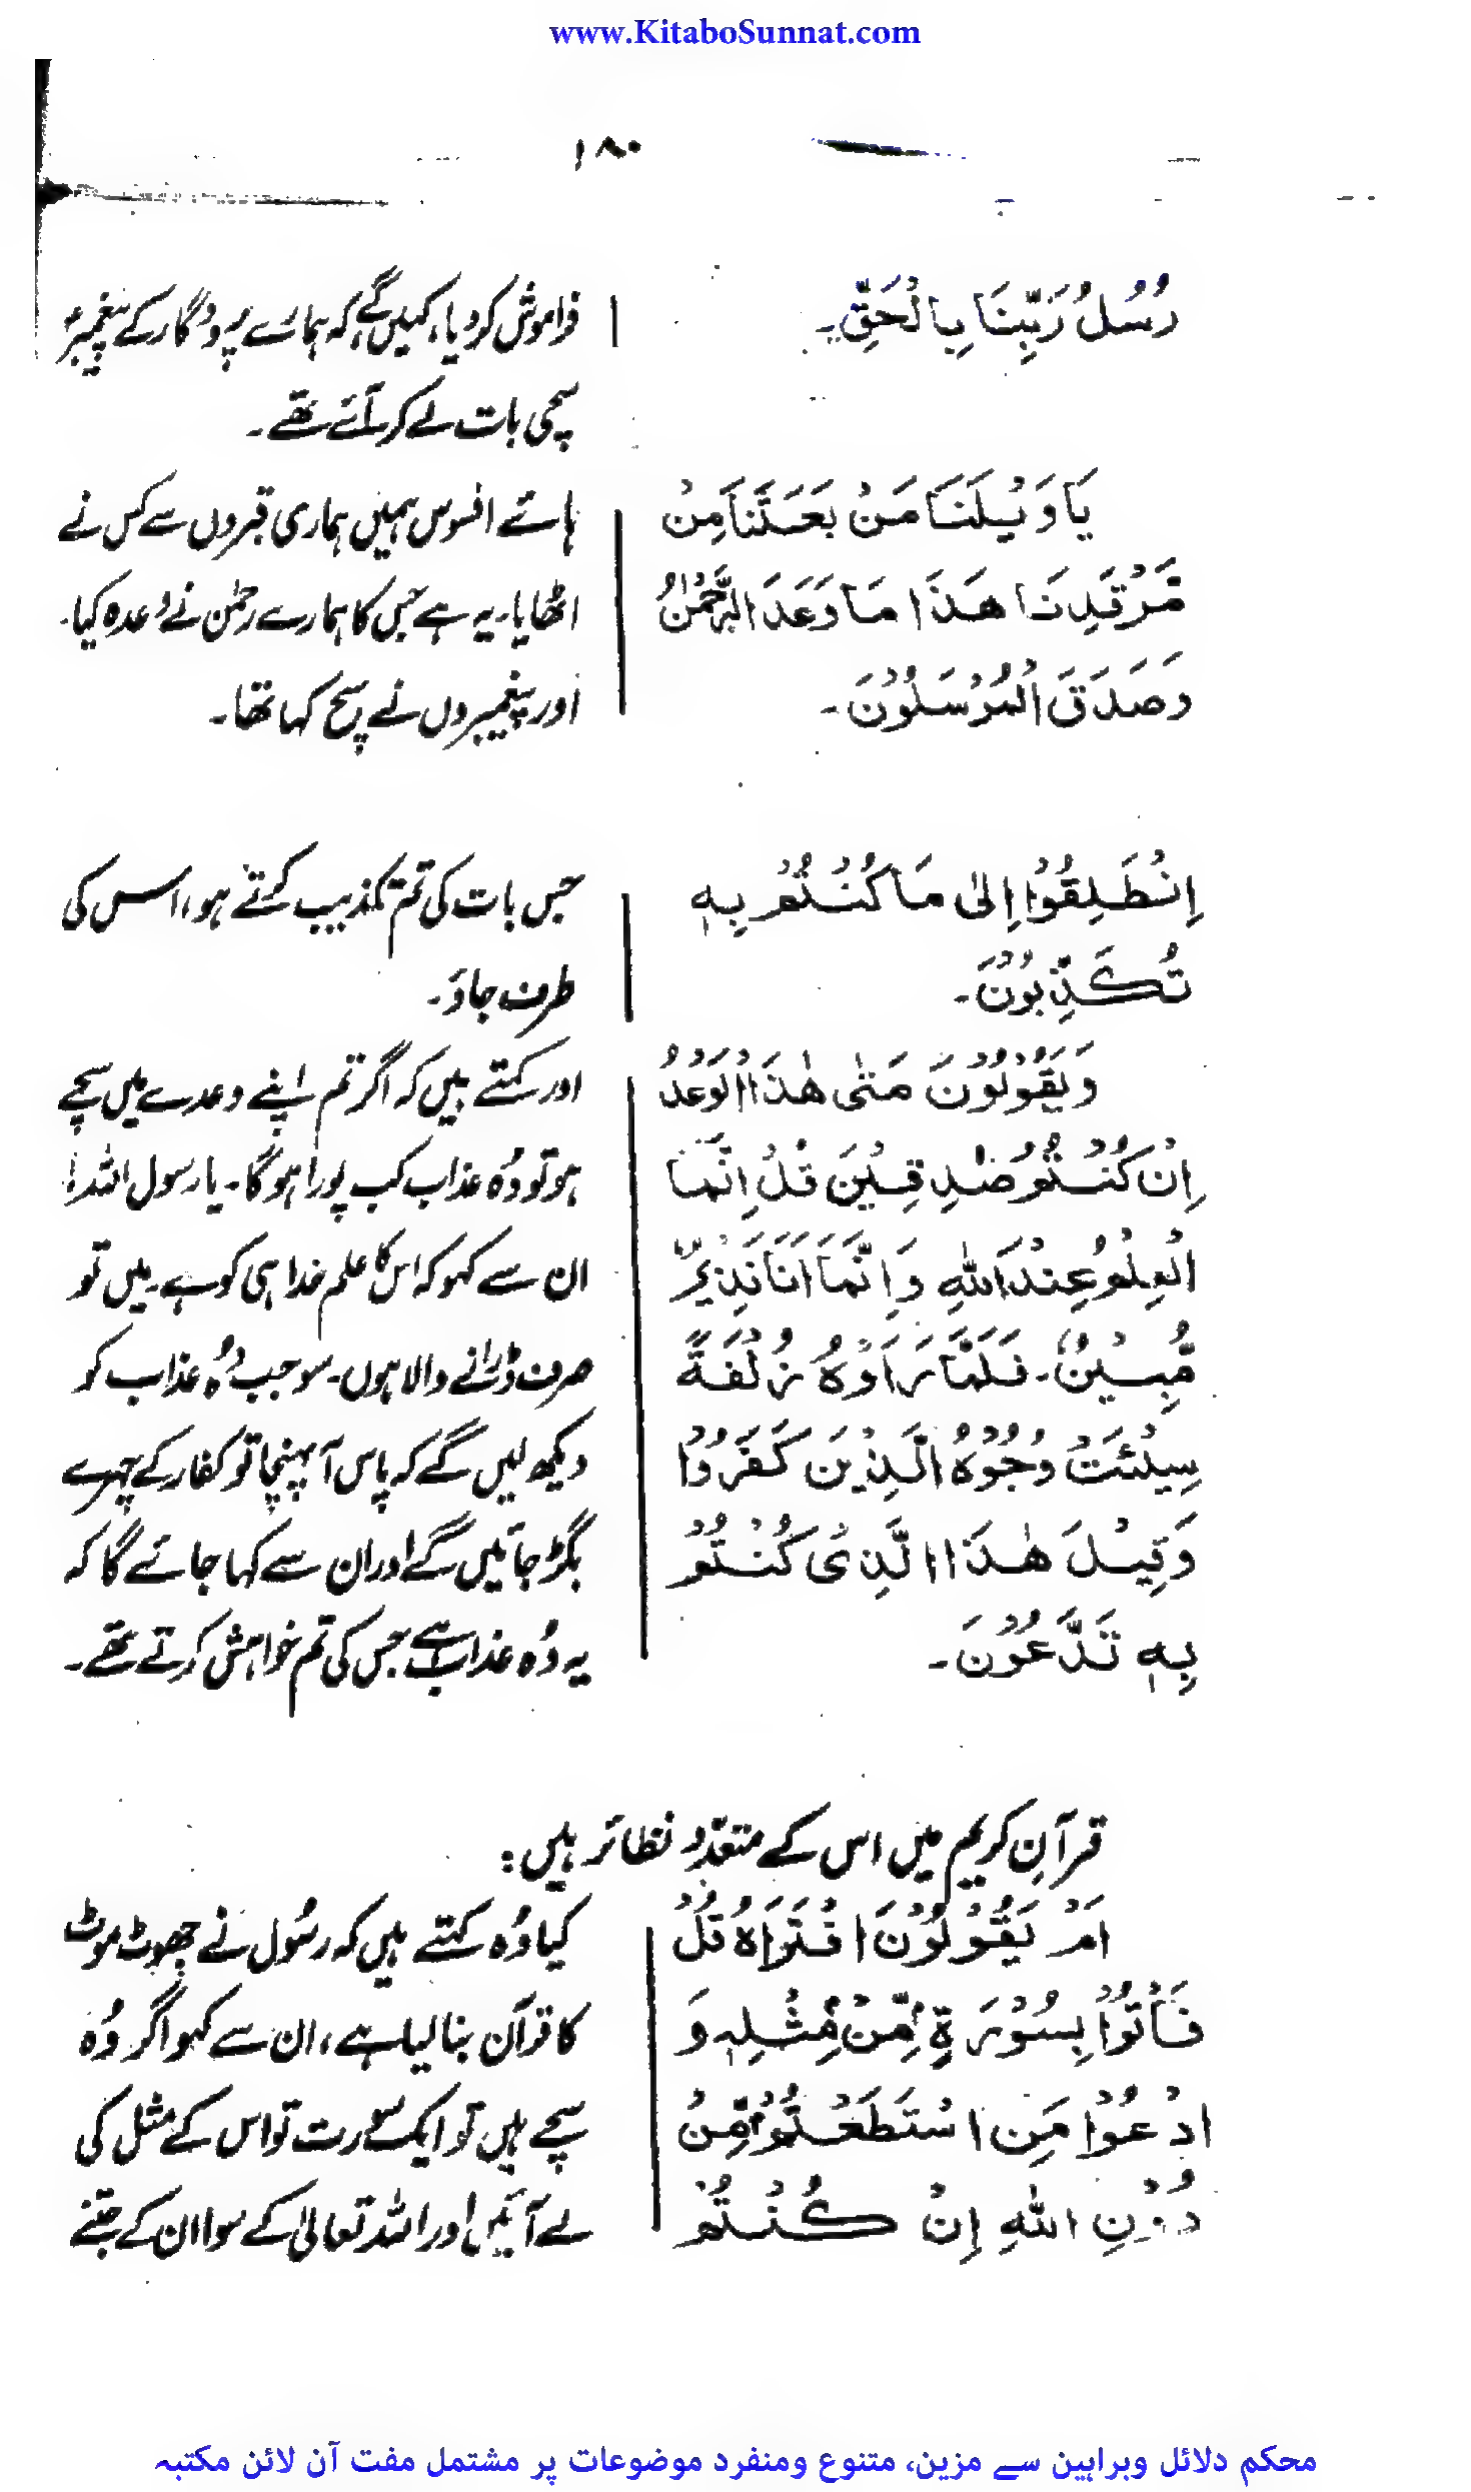 www.KitaboSunnat.com
۱۸۰
رُسُلُ رَبِّنَا بِالْحَقِّ۔
فراموش کر دیا، کہیں گے، کہ ہمارے پروردگار کے پیغمبر
سچی بات لے کر آئے تھے۔
يَا وَيْلَنَا مَنْ بَعَثَنَا مِنْ
مَّرْقَدِنَا هَذَا مَا وَعَدَ الرَّحْمٰنُ
وَصَدَقَ الْمُرْسَلُوْنَ۔
ہائے افسوس ہمیں ہماری قبروں سے کس نے
اٹھایا۔ یہ ہے جس کا ہمارے رحمٰن نے وعدہ کیا۔
اور پیغمبروں نے سچ کہا تھا۔
اِنْطَلِقُوْا اِلٰى مَا كُنْتُمْ بِهٖ
تُكَذِّبُوْنَ۔
جس بات کی تم تکذیب کرتے ہو، اس کی
طرف جاؤ۔
وَيَقُوْلُوْنَ مَتٰى هٰذَا الْوَعْدُ
اِنْ كُنْتُمْ صٰدِقِيْنَ قُلْ اِنَّمَا
الْعِلْمُ عِنْدَ اللّٰهِ وَاِنَّمَا اَنَا نَذِيْرٌ
مُّبِيْنٌ۔ فَلَمَّا رَاَوْهُ زُلْفَةً
سِيْئَتْ وُجُوْهُ الَّذِيْنَ كَفَرُوْا
وَقِيْلَ هٰذَا الَّذِىْ كُنْتُمْ
بِهٖ تَدَّعُوْنَ۔
اور کہتے ہیں کہ اگر تم اپنے وعدے میں سچے
ہو تو وُہ عذاب کب پورا ہو گا۔ یا رسول اللہ!
ان سے کہو کہ اس کا علم خدا ہی کو ہے۔ میں تو
صرف ڈرانے والا ہوں۔ سو جب وُہ عذاب کو
دیکھ لیں گے کہ پاس آ پہنچا تو کفار کے چہرے
بگڑ جائیں گے اور ان سے کہا جائے گا کہ
یہ وُہ عذاب ہے جس کی تم خواہش کرتے تھے۔
قرآنِ کریم میں اس کے متعدّد نظائر ہیں:
اَمْ يَقُوْلُوْنَ افْتَرَاهُ قُلْ
فَأْتُوْا بِسُوْرَةٍ مِّنْ مِّثْلِهٖ وَ
ادْعُوْا مَنِ اسْتَطَعْتُمْ مِّنْ
دُوْنِ اللّٰهِ اِنْ كُنْتُمْ
کیا وُہ کہتے ہیں کہ رسُول نے جھوٹ موٹ
کا قرآن بنا لیا ہے، ان سے کہو اگر وُہ
سچے ہیں تو ایک سورت تو اس کے مثل کی
لے آئیں اور اللہ تعالیٰ کے سوا ان کے جتنے
محکم دلائل وبراہین سے مزین، متنوع ومنفرد موضوعات پر مشتمل مفت آن لائن مکتبہ